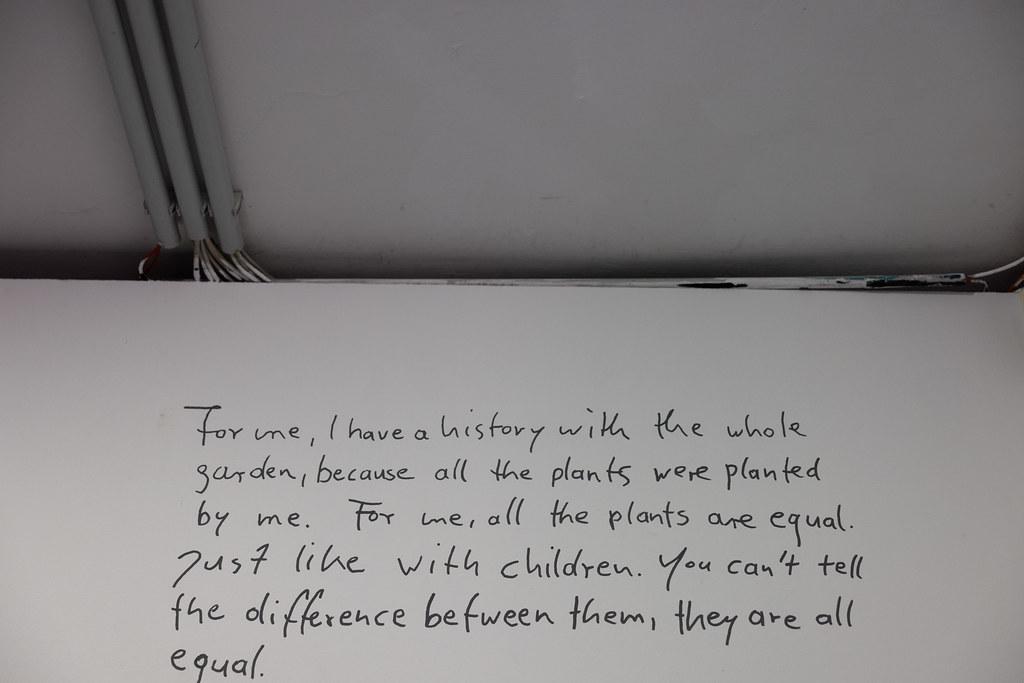 For me, I have a history with the whole
garden, because all the plants were planted
by me. For me, all the plants are equal.
Just like with children. You can't tell
the difference between them, they are all
equal.